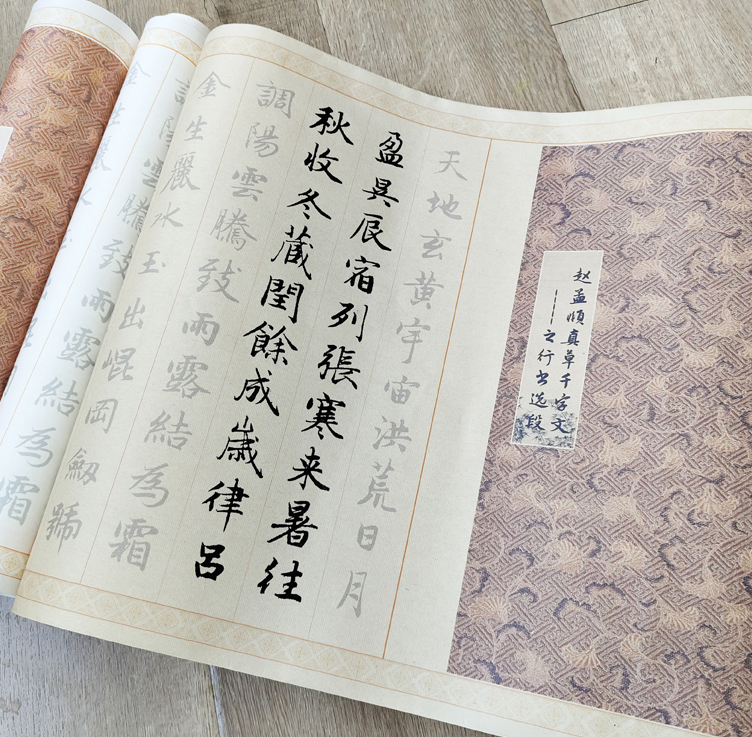 赵孟頫真草千字文
——之行书选段
天地玄黄宇宙洪荒日月
盈昃辰宿列張寒来暑往
秋收冬蔵閏餘成歳律呂
調陽雲騰致雨露結為霜
金生麗水玉出崐岡劔號
陽雲騰致雨露結為霜
生麗水